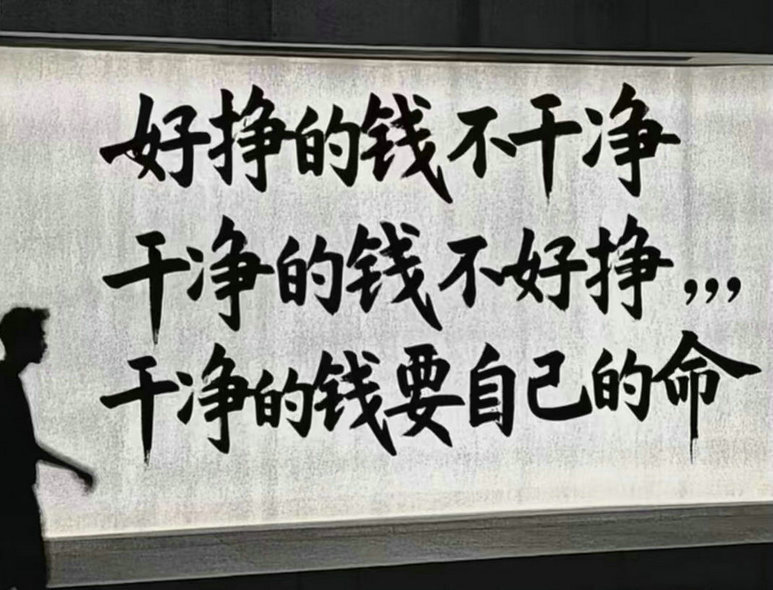 好挣的钱不干净
干净的钱不好挣,,,
干净的钱要自己的命